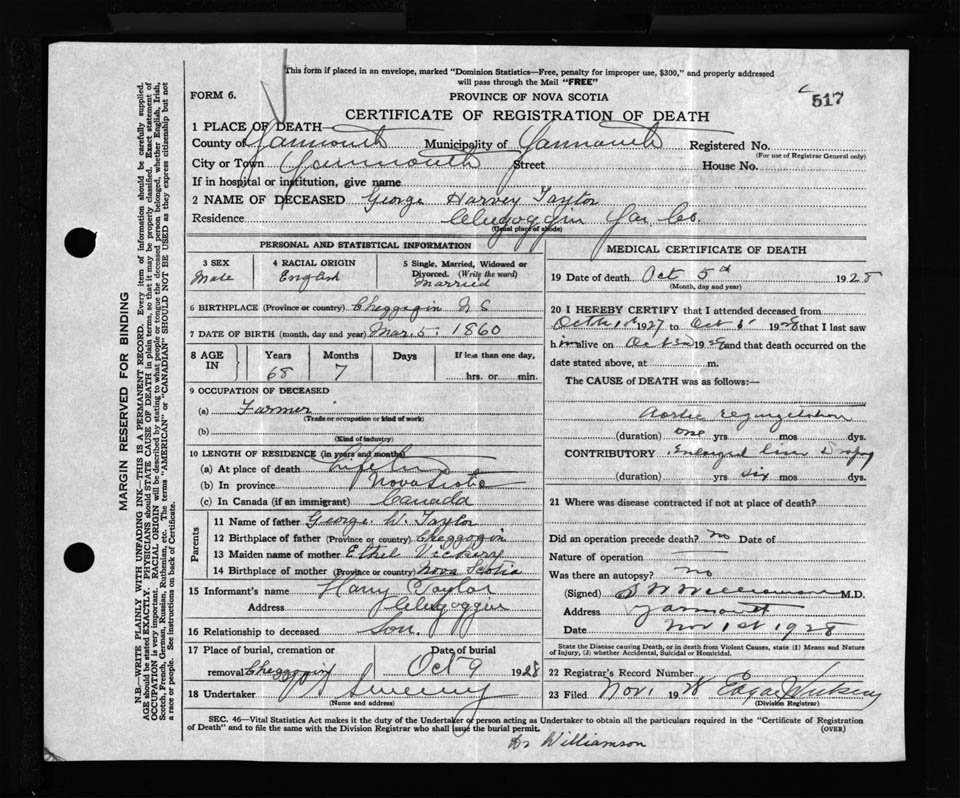 This form if placed in an envelope, marked "Dominion Statistics—Free, penalty for improper use, $300," and properly addressed
will pass through the Mail "FREE"
FORM 6.
PROVINCE OF NOVA SCOTIA
517
CERTIFICATE OF REGISTRATION OF DEATH
1 PLACE OF DEATH
County of Yarmouth Municipality of Yarmouth Registered No.
(For use of Registrar General only)
City or Town Yarmouth Street House No.
If in hospital or institution, give name
2 NAME OF DECEASED George Harvey Taylor
Residence Chegoggin Yar. Co.
(Usual place of abode)
PERSONAL AND STATISTICAL INFORMATION
3 SEX Male
4 RACIAL ORIGIN English
5 Single, Married, Widowed or Divorced. (Write the word) Married
6 BIRTHPLACE (Province or country) Cheggogin N S
7 DATE OF BIRTH (month, day and year) Mar. 5. 1860
8 AGE IN Years 68 Months 7 Days If less than one day, hrs. or min.
9 OCCUPATION OF DECEASED
(a) Farmer
(Trade or occupation or kind of work)
(b)
(Kind of industry)
10 LENGTH OF RESIDENCE (in years and months)
(a) At place of death Lifetime
(b) In province Nova Scotia
(c) In Canada (if an immigrant) Canada
Parents
11 Name of father George W. Taylor
12 Birthplace of father (Province or country) Cheggogin
13 Maiden name of mother Ethel Vickery
14 Birthplace of mother (Province or country) Nova Scotia
15 Informant's name Harry Taylor
Address Chegoggin
16 Relationship to deceased Son.
17 Place of burial, cremation or removal Cheggogin Date of burial Oct 9 1928
18 Undertaker Sweeny
(Name and address)
MEDICAL CERTIFICATE OF DEATH
19 Date of death Oct 5th 1928
(Month, day and year)
20 I HEREBY CERTIFY that I attended deceased from
1927 to Oct 5 1928 that I last saw
him alive on Oct 1928 and that death occurred on the
date stated above, at m.
The CAUSE of DEATH was as follows:—
Aortic regurgitation
(duration) one yrs mos dys.
CONTRIBUTORY Enlarged liver Dropsy
(duration) yrs six mos dys.
21 Where was disease contracted if not at place of death?
Did an operation precede death? no Date of
Nature of operation
Was there an autopsy? no
(Signed) Williamson M.D.
Address Yarmouth
Date Nov 1st 1928
State the Disease causing Death, or in death from Violent Causes, state (1) Means and Nature
of Injury, (2) whether Accidental, Suicidal or Homicidal.
22 Registrar's Record Number
23 Filed Nov. 1 1928 Edgar
(Division Registrar)
SEC. 46—Vital Statistics Act makes it the duty of the Undertaker or person acting as Undertaker to obtain all the particulars required in the "Certificate of Registration
of Death" and to file the same with the Division Registrar who shall issue the burial permit.
(OVER)
Dr Williamson
MARGIN RESERVED FOR BINDING
N.B.—WRITE PLAINLY WITH UNFADING INK—THIS IS A PERMANENT RECORD. Every item of information should be carefully supplied.
AGE should be stated EXACTLY. PHYSICIANS should STATE CAUSE OF DEATH in plain terms, so that it may be properly classified. Exact statement of
OCCUPATION is very important. RACIAL ORIGIN will be described by stating to what people or tongue the deceased person belonged, whether English, Irish,
Scotch, French, German, Russian, Ruthenian, etc. The terms "AMERICAN" or "CANADIAN" SHOULD NOT BE USED as they express citizenship but not
a race or people. See instructions on back of Certificate.